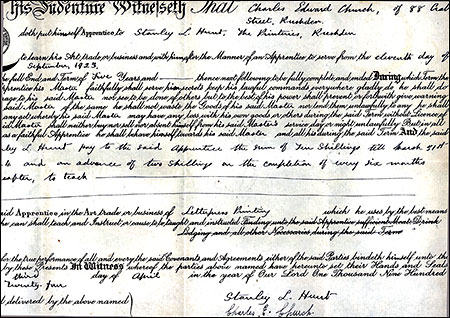 his Indenture Witnesseth That Charles Edward Church, of 88
Street, Rushden
doth put himself Apprentice to Stanley L. Hurst, The Printeries, Rushden
to learn his Art, trade or business and with him after the Manner of an Apprentice to serve from the eleventh day of
September, 1923,
the full End and Term of Five Years and thence next following to be fully complete and ended During which Term the
Apprentice his Master faithfully shall serve his secrets keep his lawful commands everywhere gladly do he shall do
age to his said Master nor see to be done of others but to the best of his power shall prevent or forthwith give warning
said Master of the same he shall not waste the Goods of his said Master nor lend them unlawfully to any he shall
any act whereby his said Master may have any loss with his own goods or others during the said Term without Licence of
id Master shall neither buy nor sell or absent himself from his said Master's service day or night unlawfully But in all
as a faithful Apprentice he shall behave himself towards his said Master and all his during the said Term And the said
ley L. Hurst pay to the said Apprentice the sum of Ten Shillings till March 31st
and an advance of two Shillings on the completion of every six months
eafter, to teach
aid Apprentice in the Art trade or business of Letterpress Printing which he uses by the best means
he can shall teach and Instruct or cause to be taught and instructed Finding unto the said Apprentice sufficient Meat Drink
Lodging and all other Necessaries during the said Term
for the true performance of all and every the said Covenants and Agreements either of the said Parties bindeth himself unto the
by these Presents In Witness whereof the parties above named have hereunto set their Hands and Seals
third day of April in the year of Our Lord One Thousand Nine Hundred
Twenty four
d delivered by the above named
Stanley L. Hurst
Charles E. Church